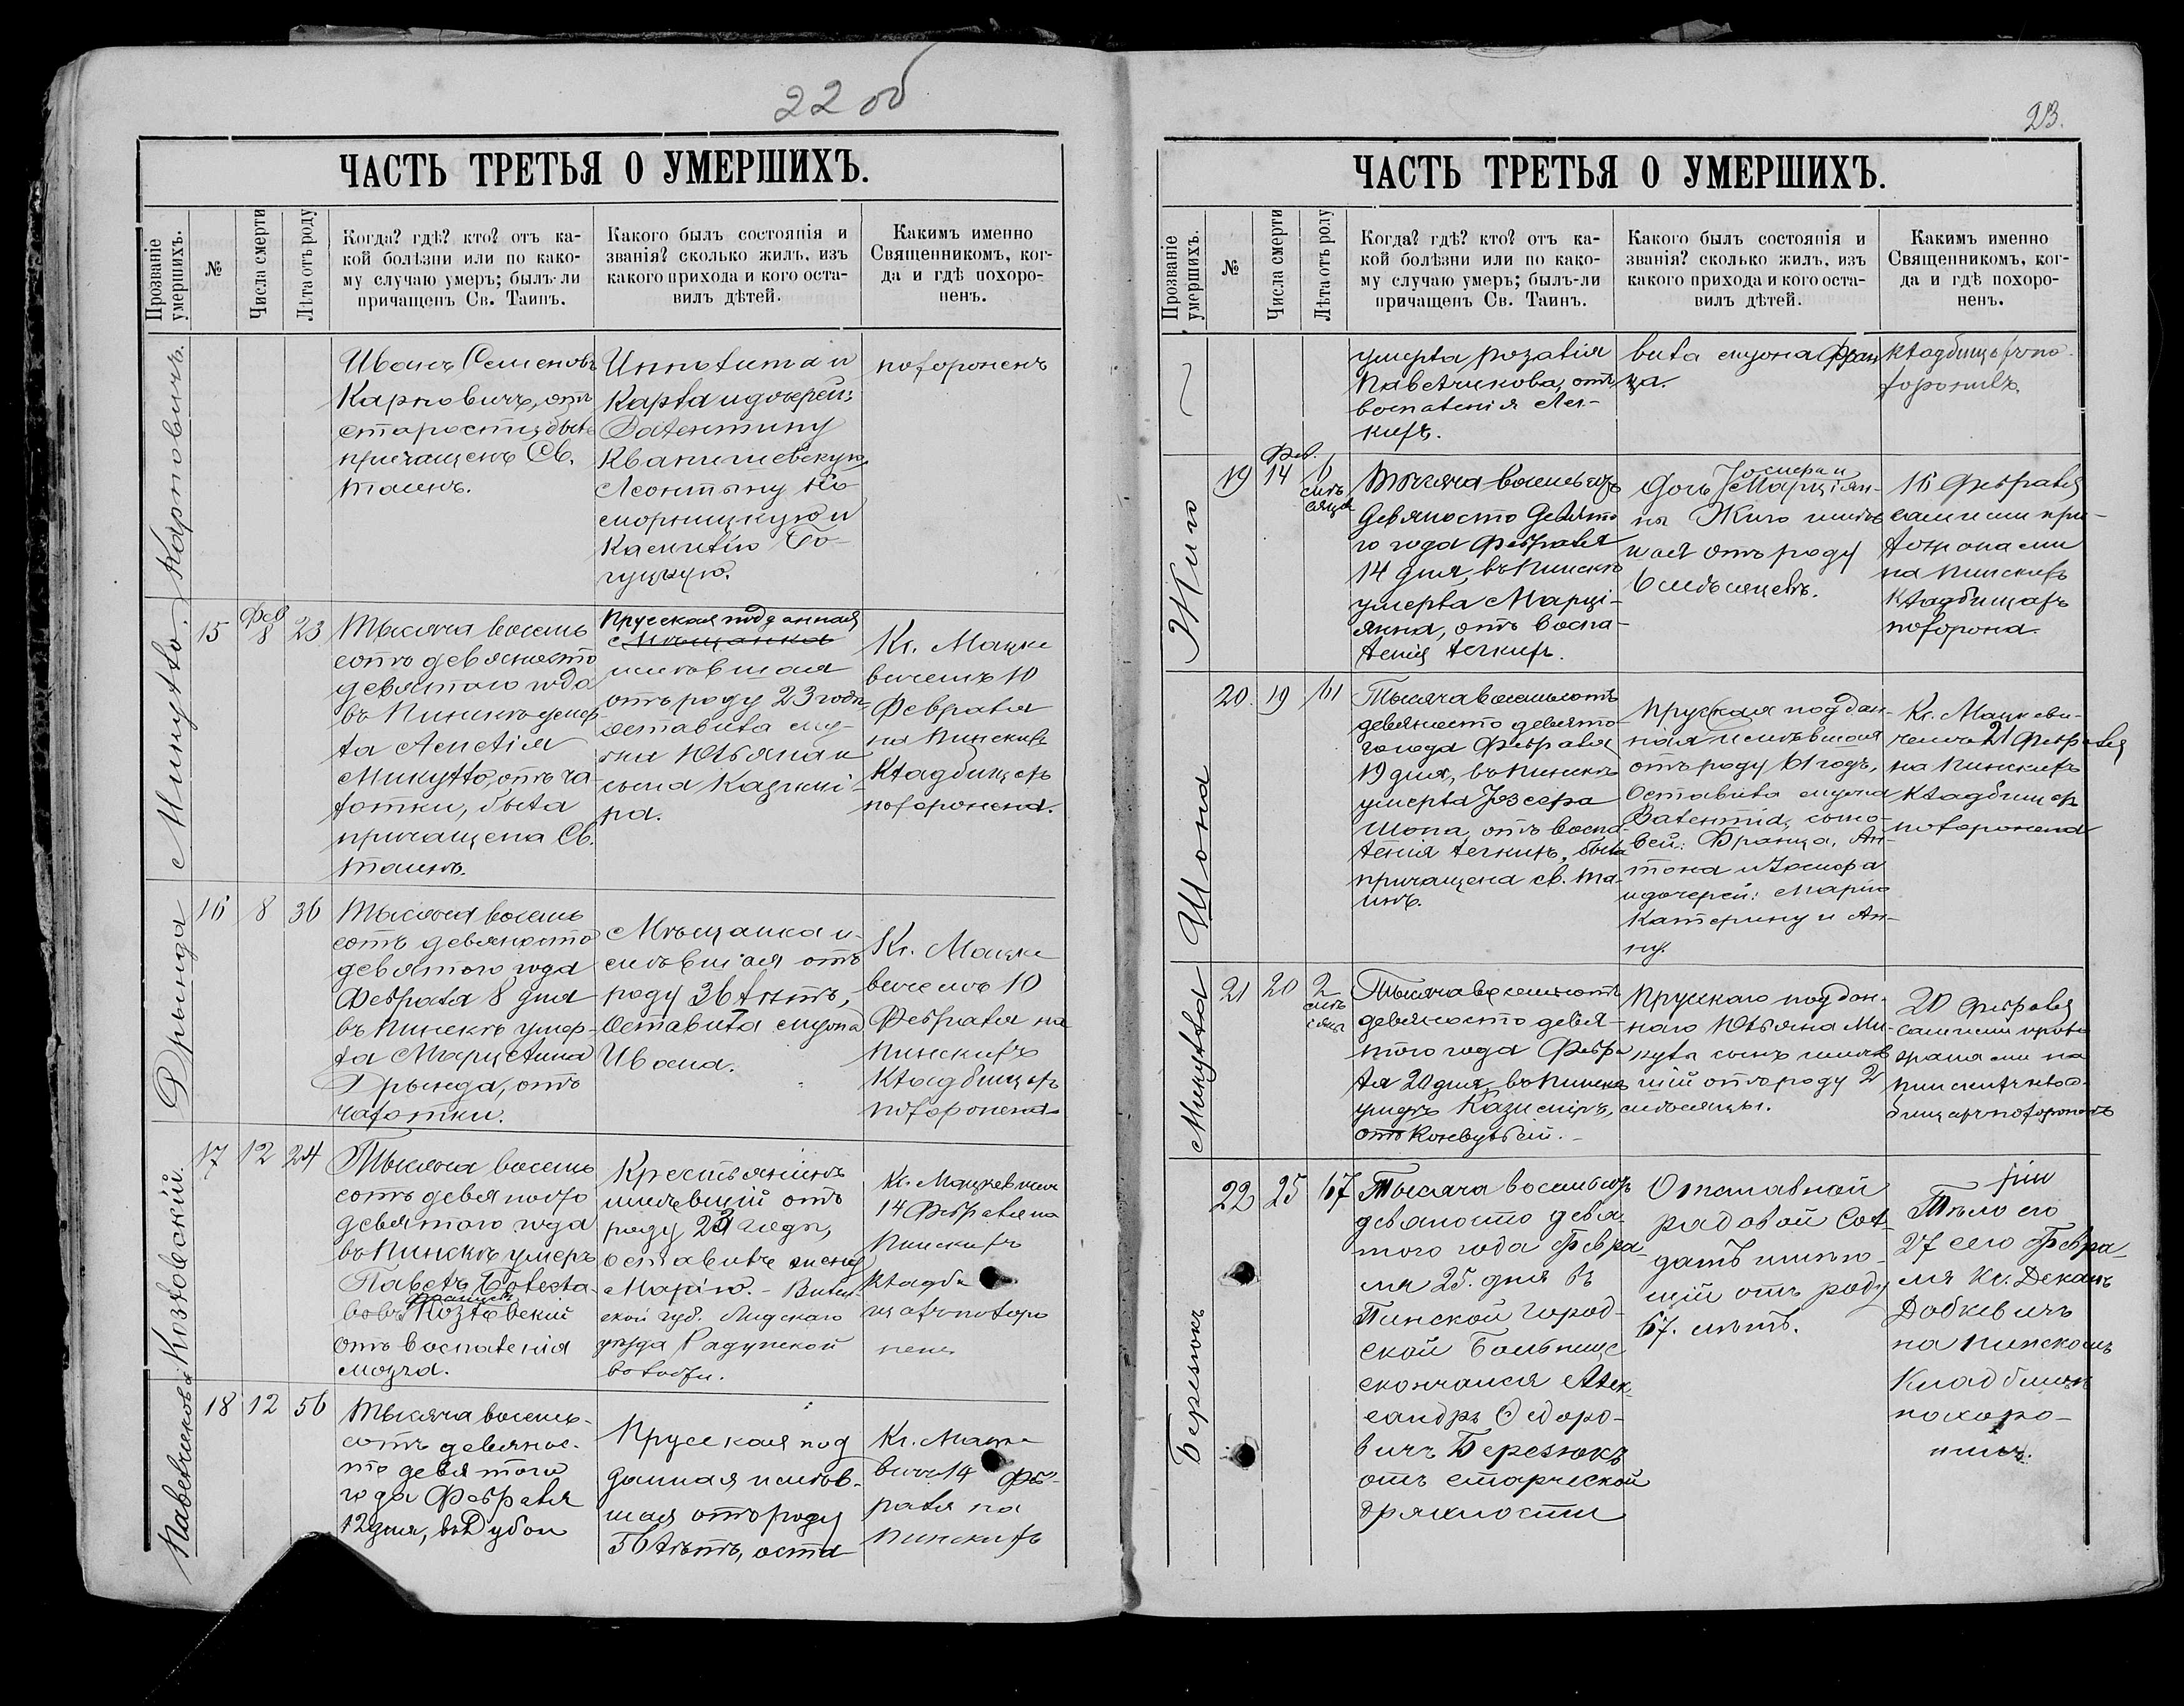 22 об
ЧАСТЬ ТРЕТЬЯ О УМЕРШИХЪ.
Прозваніе умершихъ.
№
Числа смерти
Лѣта отъ роду
Когда? гдѣ? кто? отъ ка-
кой болѣзни или по како-
му случаю умеръ; былъ-ли
причащенъ Св. Таинъ.
Какого былъ состоянія и
званія? сколько жилъ, изъ
какого прихода и кого оста-
вилъ дѣтей.
Какимъ именно
Священникомъ, ког-
да и гдѣ похоро-
ненъ.
Карповичъ.
Иванъ Семеновъ
Карповичъ, отъ
старости, былъ
причащенъ Св.
Таинъ.
Ипполита и
Карла и дочерей:
Валентину
Кванишевскую,
Леонтыну
и
Камилію
похороненъ
Микутто
15
Фев
8
23
Тысяча восемь
сотъ девяносто
девятого года
въ Пинскѣ умер-
ла
Микутто, отъ ча-
хотки, была
причащена Св.
Таинъ.
Прусская подданная
Мѣщанка
имѣвшая
отъ роду 23 года
оставила му-
жа Юльяна и
сына Казимі-
ра.
Кс. Мацке
вичемъ 10
Февраля
на Пинскихъ
кладбищахъ
похоронена.
Дрында
16
8
36
Тысяча восемь
сотъ девяносто
девятого года
Февраля 8 дня
въ Пинскѣ умер-
ла
Дрында, отъ
чахотки.
Мѣщанка и-
мѣвшая отъ
роду 36 лѣтъ,
Оставила мужа
Ивана.
Кс. Мацке
вичемъ 10
Февраля на
Пинскихъ
кладбищахъ
похоронена
Козловскій.
17
12
24
Тысяча восемь
сотъ девяносто
девятого года
въ Пинскѣ умеръ
Павелъ Болесла-
вовъ Козловскій
отъ воспаленія
мозга.
Крестьянинъ
имѣвшій отъ
роду 24 годы,
оставилъ жену
Марію. - Вилен
ской губ. Лидскаго
уѣзда Радунской
волости.
Кс. Мацкевичемъ
14 Февраля на
Пинскихъ
кладби
щахъ похоро
ненъ
Павельчикова
18
12
56
Тысяча восемь-
сотъ девянос-
то девятого
года Февраля
12 дня, въ Дубои
Прусская под
данная имѣв-
шая отъ роду
56 лѣтъ, оста
Кс. Мацке
вичемъ 14 Фев-
раля на
Пинскихъ
23.
ЧАСТЬ ТРЕТЬЯ О УМЕРШИХЪ.
Прозваніе умершихъ.
№
Числа смерти
Лѣта отъ роду
Когда? гдѣ? кто? отъ ка-
кой болѣзни или по како-
му случаю умеръ; былъ-ли
причащенъ Св. Таинъ.
Какого былъ состоянія и
званія? сколько жилъ, изъ
какого прихода и кого оста-
вилъ дѣтей.
Какимъ именно
Священникомъ, ког-
да и гдѣ похоро-
ненъ.
умерла Розалія
Павельчикова, отъ
воспаленія Лег-
кихъ.
вила мужа Фран
ца.
кладбищахъ по-
хоронилъ
Жило
19
Фев.
14
6
мѣ
сяца
Тысяча восемьсотъ
девяносто девято
го года Февраля
14 дня, въ Пинскѣ
умерла Марці-
янна, отъ воспа-
ленія легкихъ.
Дочь Іосифа и Марціян-
ны Жило имѣв
шая отъ роду
6 мѣсяцевъ.
16 Февраля
самими при-
хожанами
на Пинскихъ
кладбищахъ
похорона.
Шона
20.
19
61
Тысяча восемьсотъ
девяносто девято-
го года Февраля
19 дня, въ Пинскѣ
умерла Юзефа
Шона, отъ воспа-
ленія легкихъ, была
причащена св. Та-
инъ.
Прусская поддан-
ная имѣвшая
отъ роду 61 годъ,
Оставила мужа
Валентія, сыно-
вей: Франца, Ан-
тона и Іосифа
и дочерей: Марію
Катерину и Ан-
ну.
Кс. Мацкеви-
чемъ 21 Февраля
на Пинскихъ
кладбищахъ
похоронена
Микутта
21
20
2
мѣ
сяцы
Тысяча восемьсотъ
девяносто девя-
того года Февра
ля 20 дня, въ Пинскѣ
умеръ Казиміръ,
отъ Конвульсій.-
Прусскаго поддан-
наго Юльяна Ми-
кутты сынъ имѣв
шій отъ роду 2
мѣсяцы.
20 Февраля
самими прихо
жанами на
Пинскихъ клад
бищахъ похороненъ
Березюкъ
22
25
67
Тысяча восемьсотъ
девяносто девя-
того года Февра-
ля 25. дня въ
Пинской Город-
ской Больнице
скончался Алек
сандръ Ѳедоро-
вичъ Березюкъ
отъ старческой
дряхлости
Отставной
рядовой Сол-
датъ имѣю-
щій отъ роду
67. лѣтъ.
Тѣло его
27 сего Февра-
ля Кс. Деканъ
Добкевичъ
на Пинскомъ
Кладбищѣ
похоро-
нилъ.